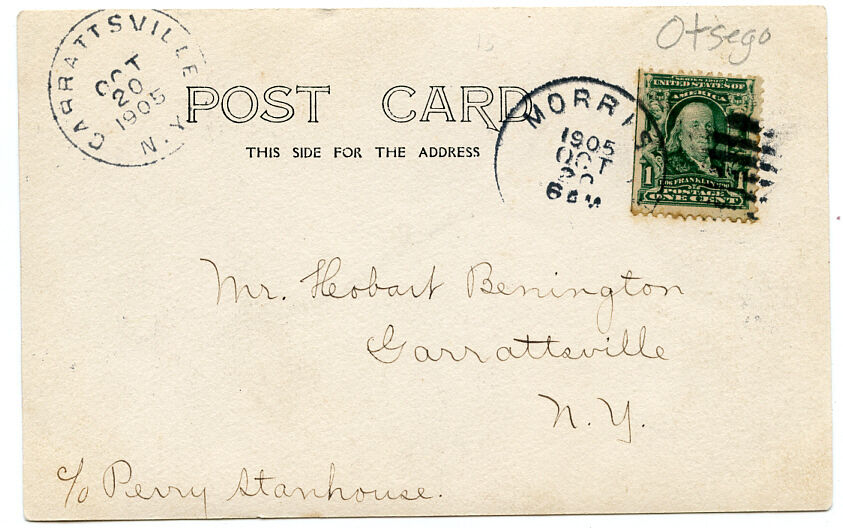 Otsego
GARRATTSVILLE
OCT
20
1905
N.Y.
POST CARD
THIS SIDE FOR THE ADDRESS
MORRIS
1905
OCT
20
SERIES 1902
UNITED STATES OF
AMERICA
1 1
FRANKLIN
POSTAGE
ONE CENT
Mr. Hobart Benington
Garrattsville
N.Y.
c/o Perry Stanhouse.